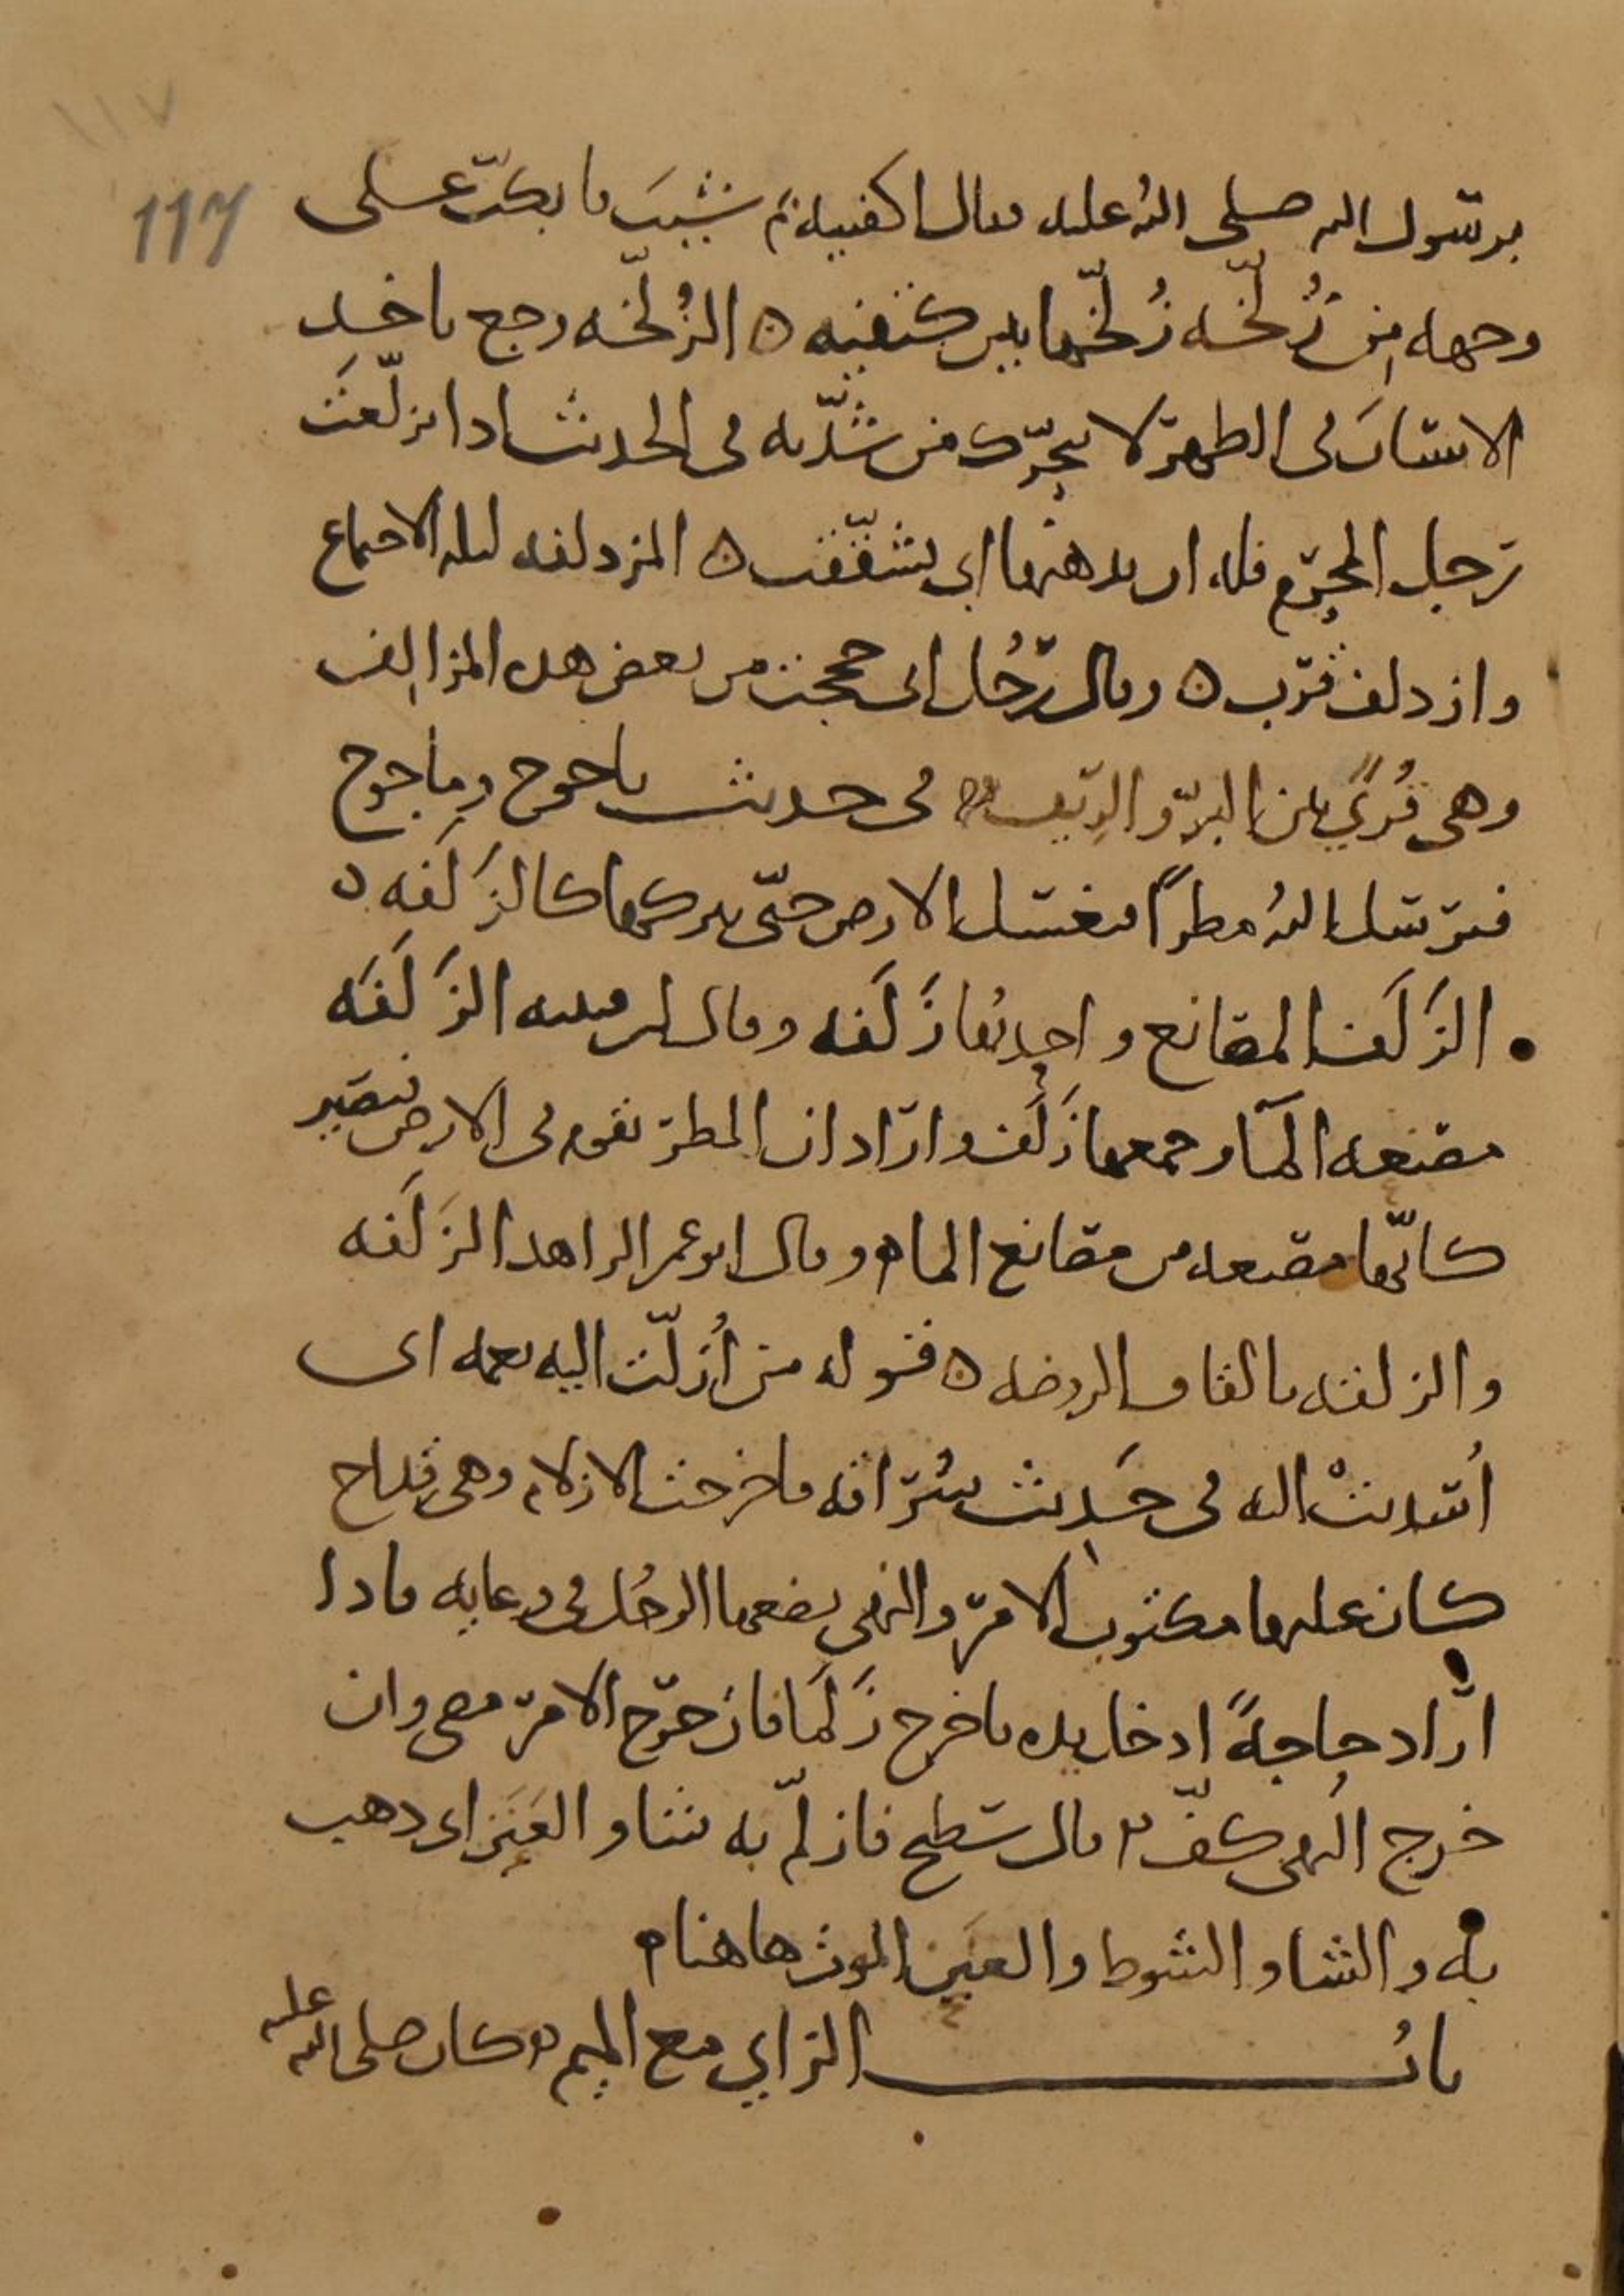 ١١٧
117
برسول الله صلى الله عليه فقال اكفنيه ثم شيب فانكب على
وجهه من زلخه زلخها بين كتفيه ٥ الزلخه وجع ياخذ
الانسان فى الظهر لا يتحرك من شدته فى الحديث اذا تزلعت
رجل المحرم فله ان يدهنها اى تشققت ٥ المزدلفه ليله الاجتماع
وازدلف قرب ٥ وقال رجل انى حججت من بعض هذه المزالف
وهى قرى بين البر والريف ٥ فى حديث ياجوج وماجوج
فيرسل الله مطرا فيغسل الارض حتى يتركها كالزلفه ٥
الزلف المصانع واحدتها زلفه وقال ابن قتيبه الزلفه
مصنعه الماء وجمعها زلف واراد ان المطر يقع فى الارض فيصير
كانها مصنعه من مصانع الماء ٥ وقال ابو عمر الزاهد الزلفه
والزلفه بالقاف الروضه ٥ قوله من أزلت اليه نعمه اى
أسديت اليه فى حديث سراقه فاخرجت الازلام وهى قداح
كان عليها مكتوب الامر والنهى يضعها الرجل فى وعايه فاذا
اراد حاجة ادخل يده فاخرج زلما فان خرج الامر مضى وان
خرج النهى كف ٥ قال سطيح فازلم به شاو العنن اى ذهب
به والشاو الشوط والعنن الموت هاهنا ٥
باب الزاي مع الميم ٥ كان صلى الله عليه